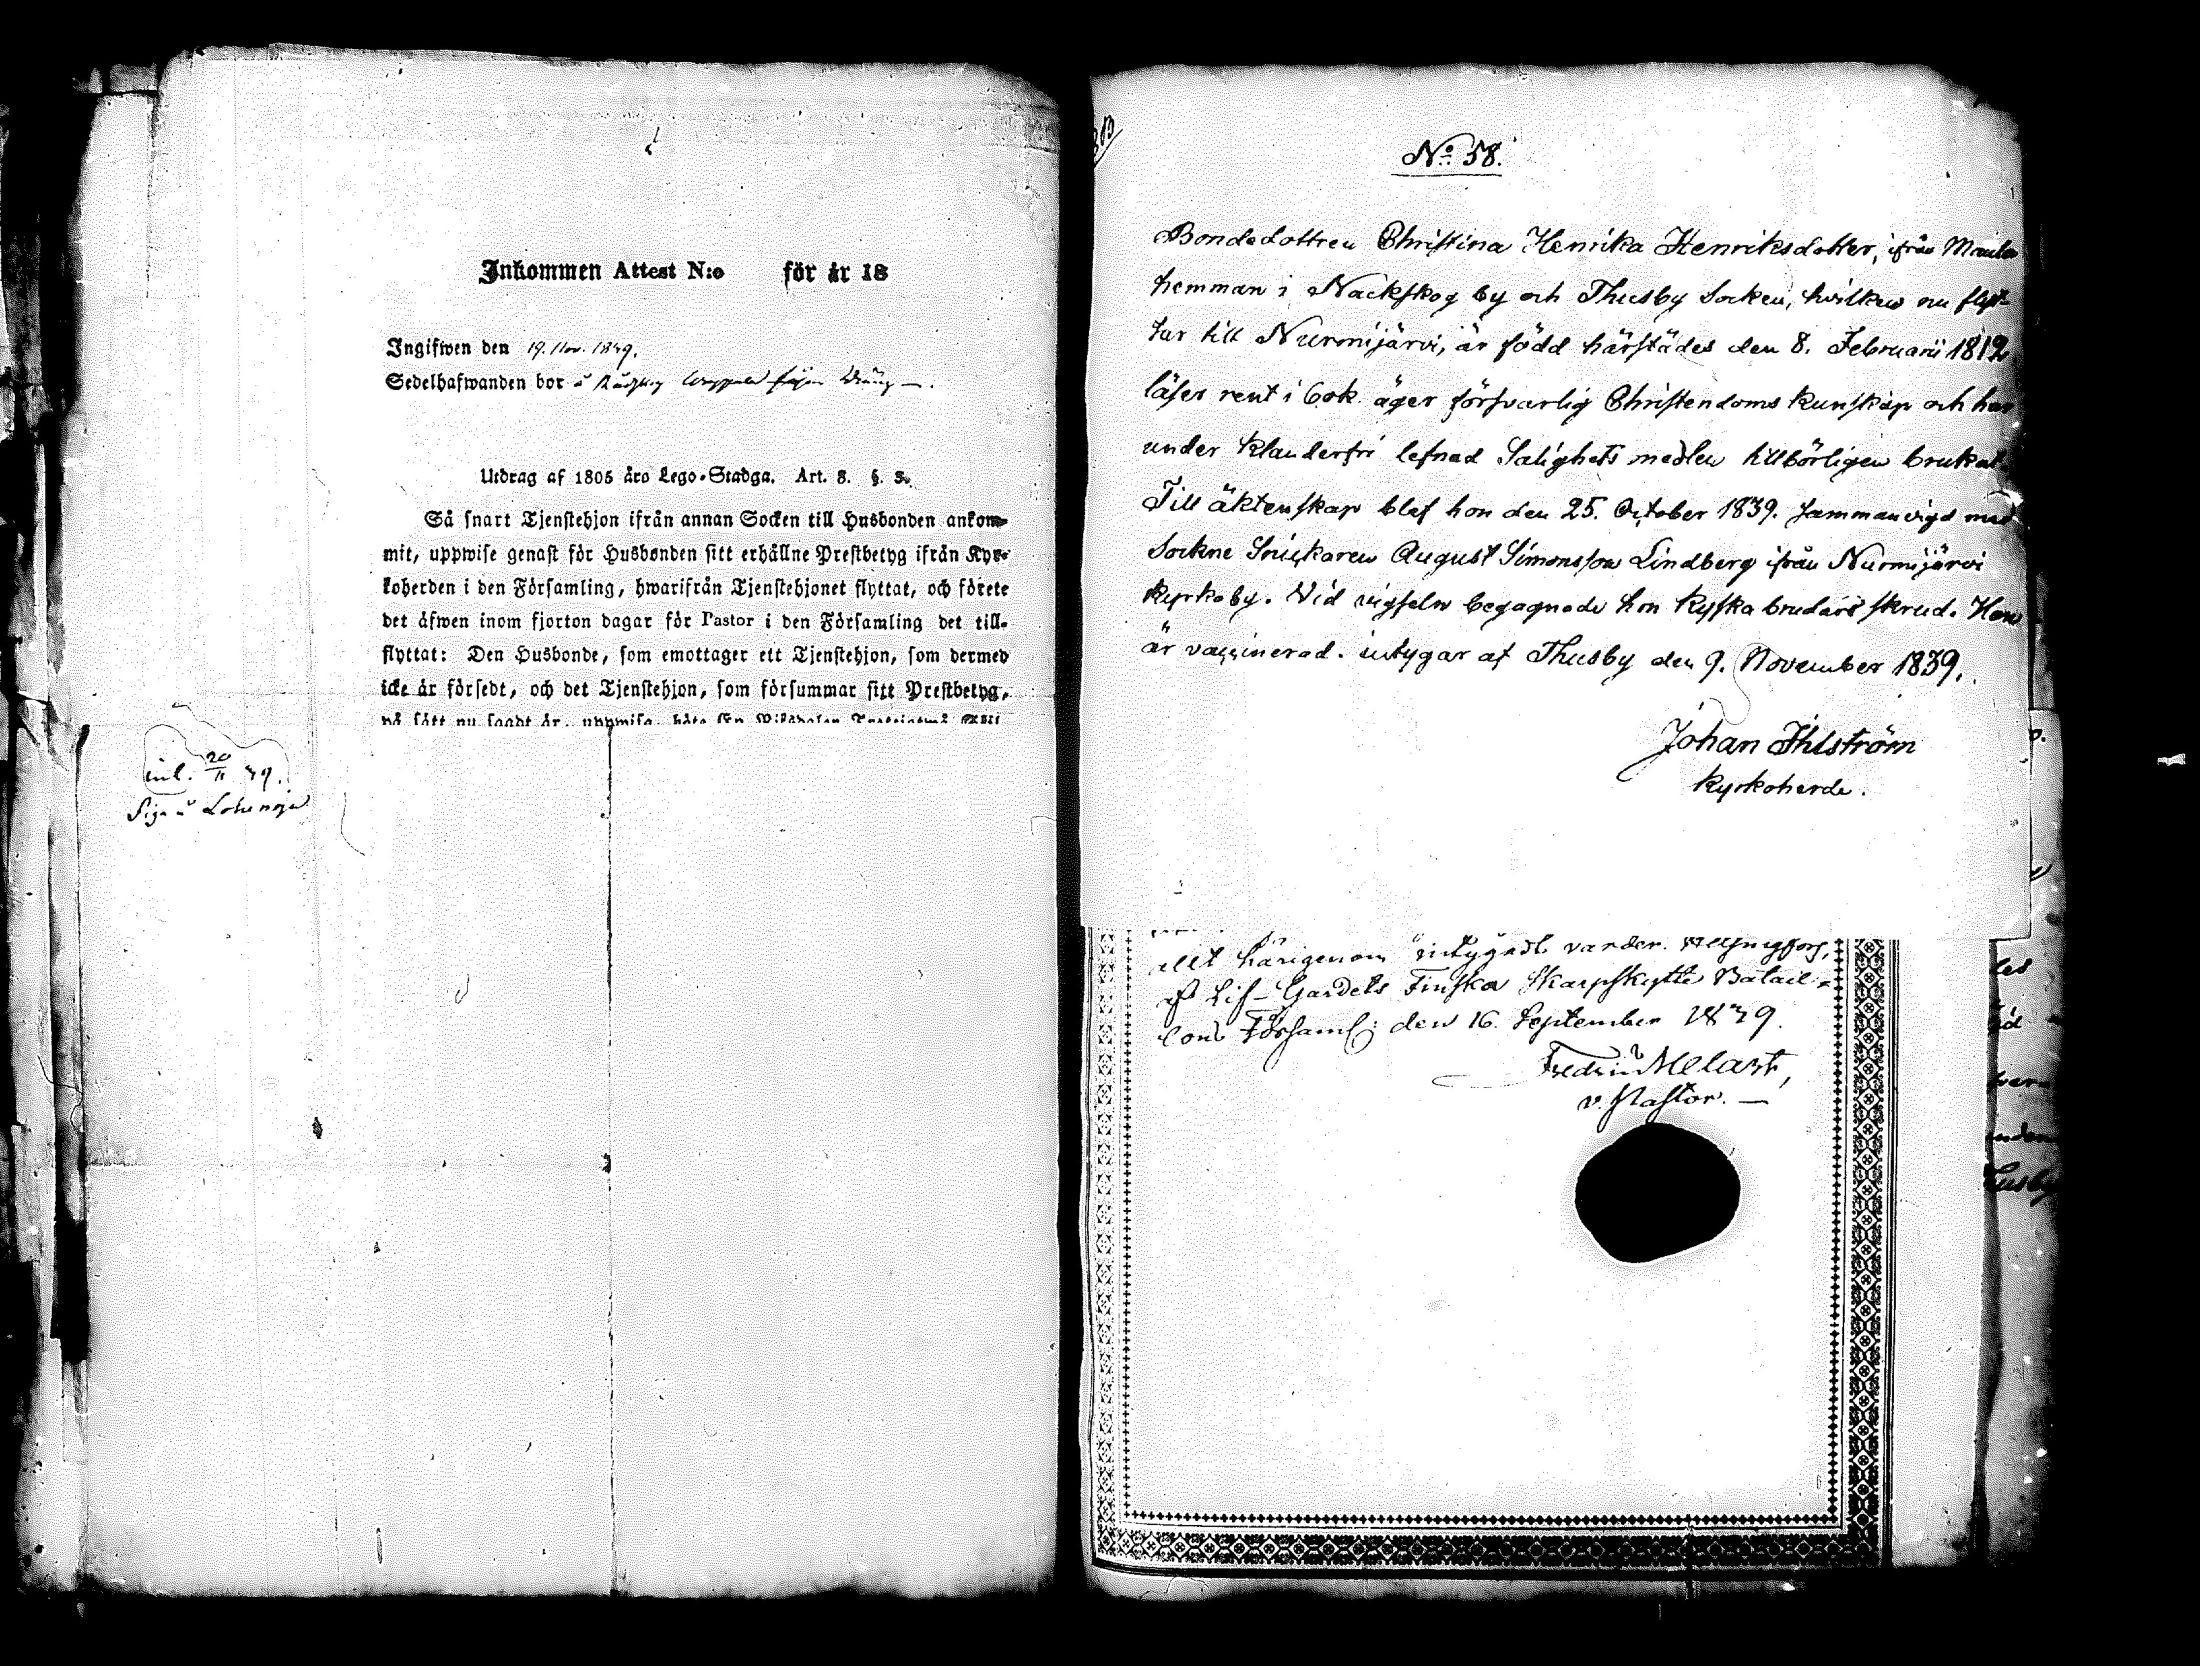 Inkommen Attest N:o för år 18
Ingifwen den 19. Nov. 1839.
Sedelhafwanden bor å
Utdrag af 1805 års Lego-Stadga. Art. 8. §. 3.
Så snart Tjenstehjon ifrån annan Socken till Husbonden ankom-
mit, uppwise genast för Husbonden sitt erhållne Prestbetyg ifrån Kyr-
koherden i den Församling, hwarifrån Tjenstehjonet flyttat, och förete
det äfwen inom fjorton dagar för Pastor i den Församling det till-
flyttat: Den Husbonde, som emottager ett Tjenstehjon, som dermed
icke är försedt, och det Tjenstehjon, som försummar sitt Prestbetyg,
på sätt nu sagdt är, uppwisa, böte
inl. 20/11 39.
Lohenoja
No 58.
Bondedottren Christina Henrika Henriksdotter, ifrån Maula
hemman i Nackskog by och Thusby Socken, hvilken nu flyt-
tar till Nurmijärvi, är född härstädes den 8. Februarii 1812
läser rent i bok. äger försvarlig Christendoms kunskap och har
under klanderfri lefnad Salighets medlen tillbörligen brukat
Till äktenskap blef hon den 25. October 1839. sammanvigd med
Sockne Snickaren August Simonsson Lindberg ifrån Nurmijärvi
kyrkoby. Vid vigseln begagnade hon kyska brudars skrud. Hon
är vaccinerad. intygar af Thusby den 9. November 1839.
Johan Ihlström
Kyrkoherde.
allt härigenom intygadt varder. Helsingfors,
af Lif-Gardets Finska Skarpskytte Batail-
lons Församl; den 16. September 1839.
Fredrik Melart,
v. Pastor.